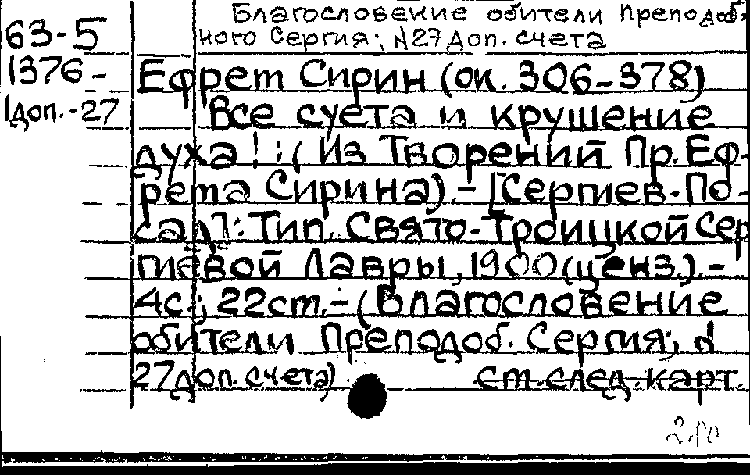 Благословение обители Преподоб-
63-5 ного Сергия; N27 доп. счета
1376- Ефрем Сирин (ок. 306-378)
1доп.-27 Все суета и крушение
духа! : (Из Творений Пр. Еф-
рема Сирина).-[Сергиев-По-
сад]: Тип. Свято-Троицкой Сер
гиевой Лавры, 1900 (ценз.).-
4с.; 22см.-(Благословение
обители Преподоб. Сергия; N
27 доп. счета) см. след. карт.